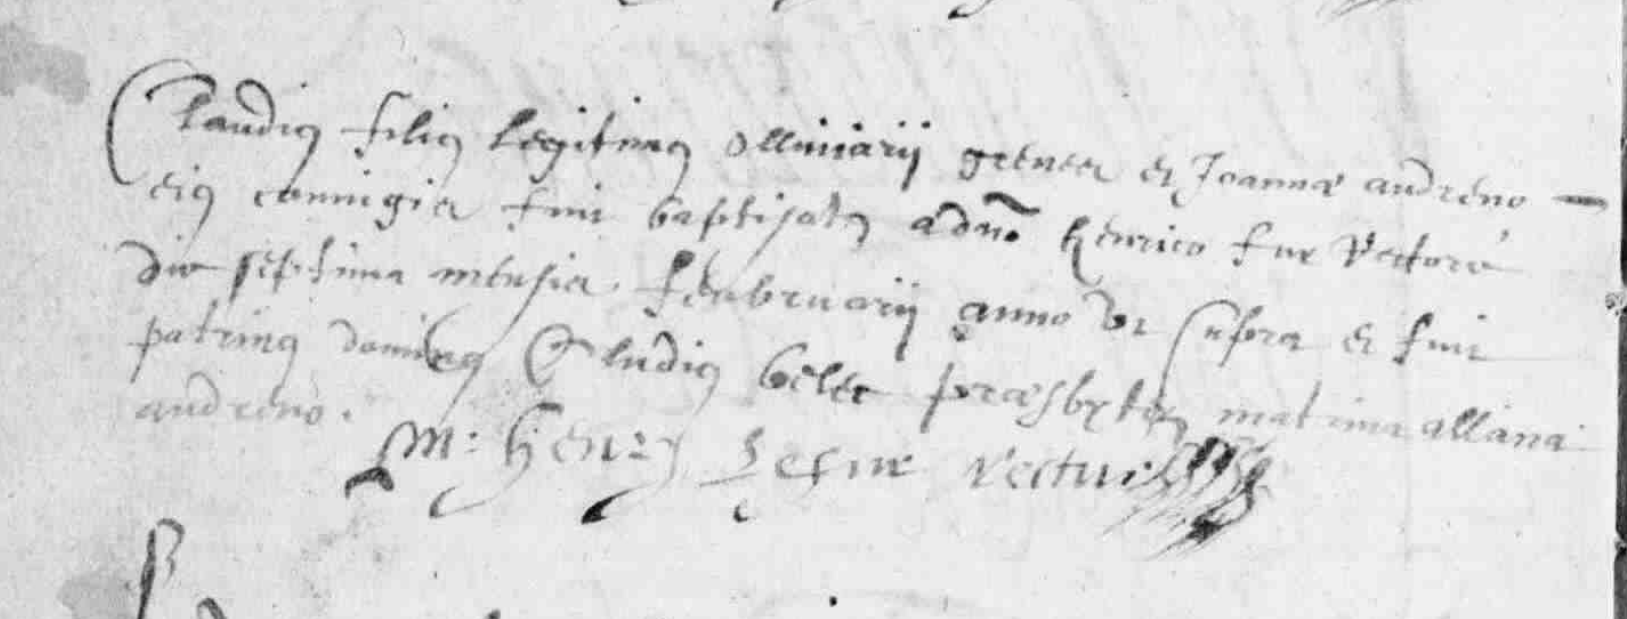 Claudiꝰ filiꝰ legitimꝰ Olliviarii grener et Joannæ andreno
eiꝰ conniugia fuit baptisatꝰ a dno henrico fux Rectore
die septima mensia februarii anno ut supra et fuit
patrinꝰ dominꝰ Cludiꝰ belec præsbyter matrina allana
andreno.
M: Henry Lefur rectur